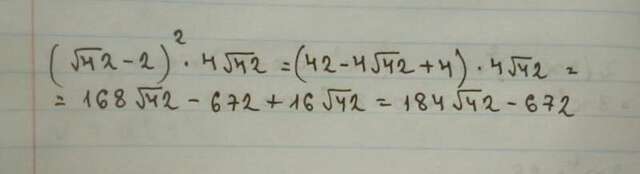 (√42 - 2)² · 4√42 = (42 - 4√42 + 4) · 4√42 =
= 168√42 - 672 + 16√42 = 184√42 - 672